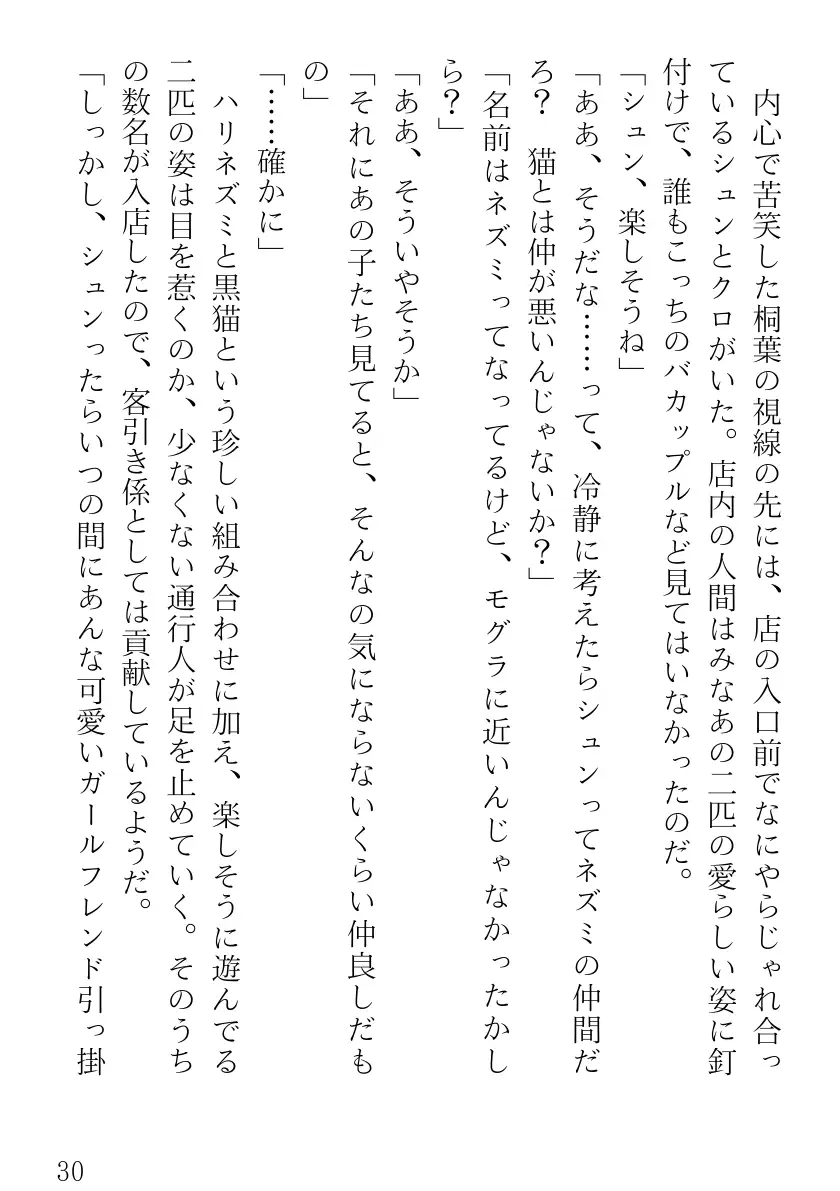 内心で苦笑した桐葉の視線の先には、店の入口前でなにやらじゃれ合っ
ているシュンとクロがいた。店内の人間はみなあの二匹の愛らしい姿に釘
付けで、誰もこっちのバカップルなど見てはいなかったのだ。
「シュン、楽しそうね」
「ああ、そうだな……って、冷静に考えたらシュンってネズミの仲間だ
ろ？　猫とは仲が悪いんじゃないか？」
「名前はネズミってなってるけど、モグラに近いんじゃなかったかし
ら？」
「ああ、そういやそうか」
「それにあの子たち見てると、そんなの気にならないくらい仲良しだも
の」
「……確かに」
　ハリネズミと黒猫という珍しい組み合わせに加え、楽しそうに遊んでる
二匹の姿は目を惹くのか、少なくない通行人が足を止めていく。そのうち
の数名が入店したので、客引き係としては貢献しているようだ。
「しっかし、シュンったらいつの間にあんな可愛いガールフレンド引っ掛
30